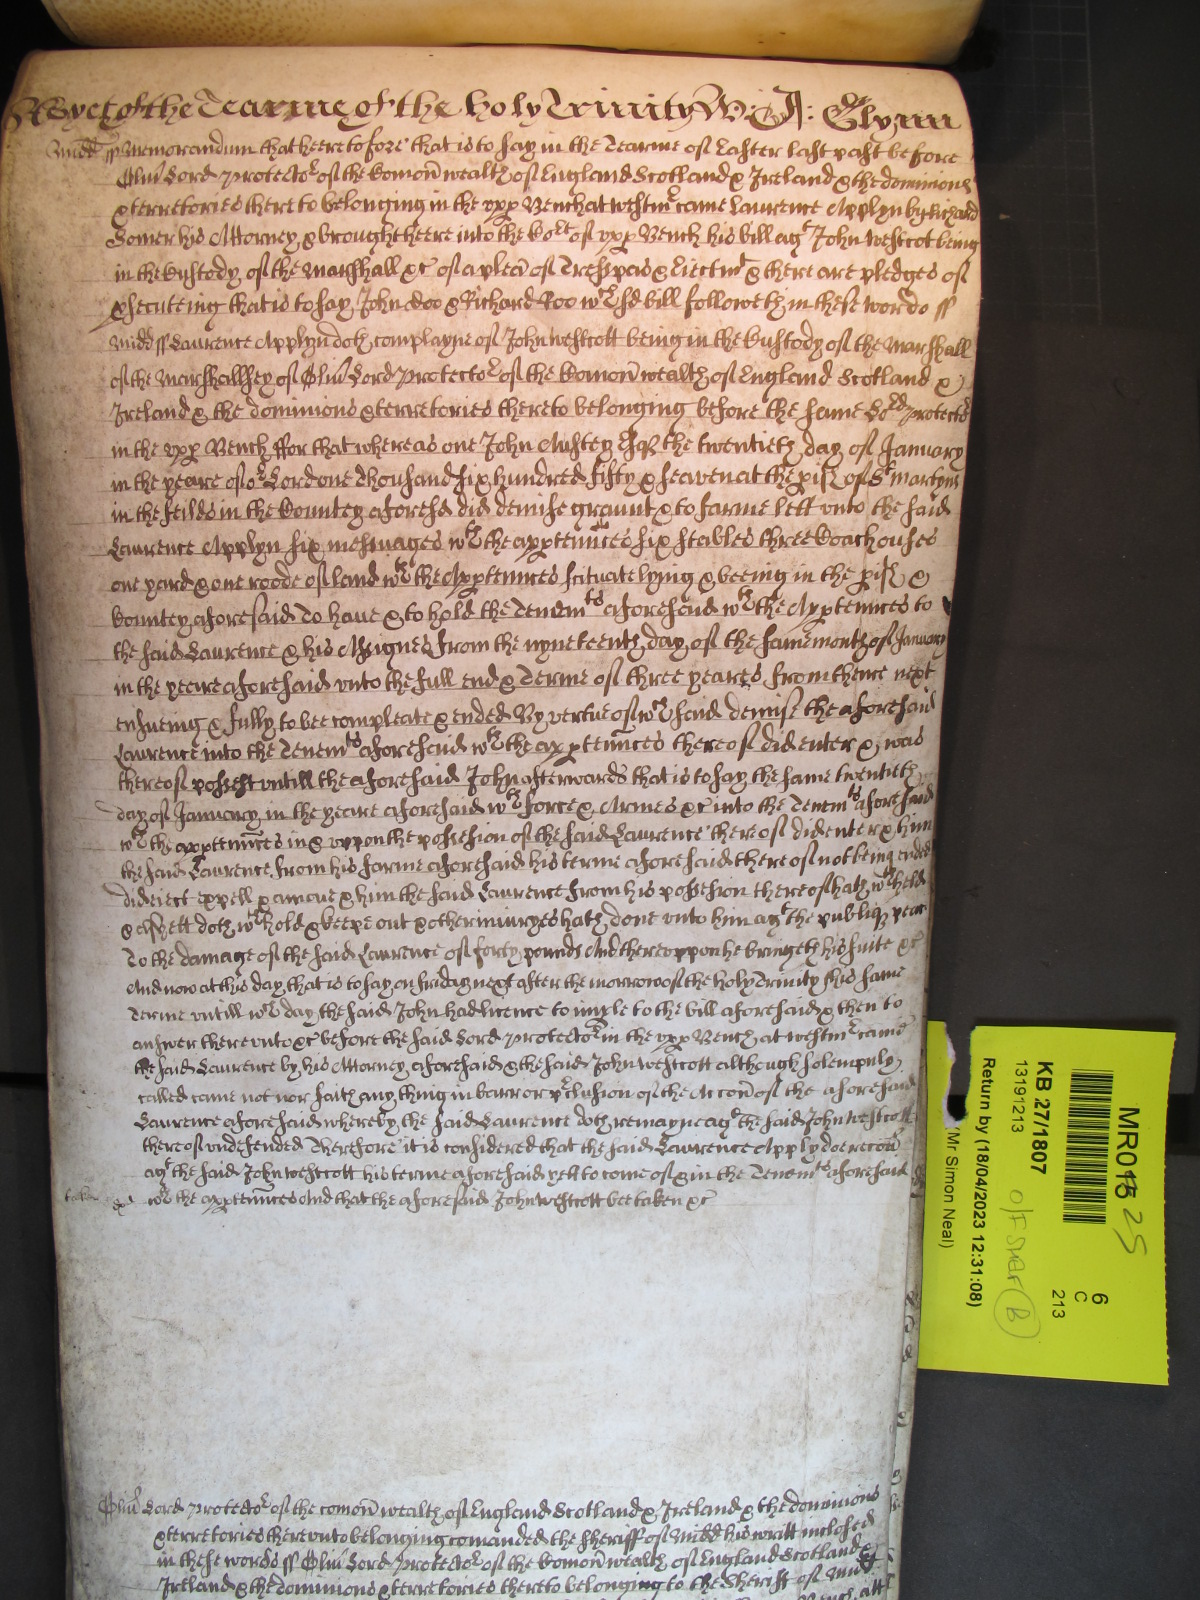 Yet of the Tearme of the Holy Trinity Glynn
Midd ss Memorandum that heeretofore that is to say in the Tearme of Easter last past before
Oliver Lord Protector of the Comon wealth of England Scotland & Ireland & the dominions
& terretories thereto belonging in the upp Bench at Westmr came Laurence Applyn by Richard
Somer his Attorney & brought heere into the Cort of upp Bench his bill agt John Westcot being
in the Custody of the Marshall &c of a plea of Trespas & Eiectmt & there are pledges of
p̱secuteing that is to say John Doo & Richard Roo wch sd bill followeth in these words ss
Midd ss Laurence Applyn doth complayne of John Westcott being in the Custody of the Marshall
of the Marshallsey of Oliver Lord Protector of the Comon wealth of England Scotland &
Ireland & the dominions & terretories thereto belonging before the same Lord Protector
in the upp Bench ffor that whereas one John Austen Esqr the twentieth day of January
in the yeare of or Lord one Thousand six hundred fifty & seaven at the pish of St Martyns
in the feilds in the Countey aforesd did demise graunt & to farme lett unto the said
Laurence Applyn six messuages wth the apptennces six stables three Coachouses
one yard & one roode of land wth the Apptennces scituate lying & beeing in the pish &
Countey aforesaid To have & to hold the Tenemts aforesaid wth the Apptennces to
the said Laurence & his Assignes from the nyneteenth day of the same month of January
in the yeare aforesaid unto the full end & Terme of three yeares from thence next
ensueing & fully to bee compleate & ended By vertue of wch said demise the aforesaid
Laurence into the Tenemts aforesaid wth the apptennces thereof did enter & was
thereof possest untill the aforesaid John afterwards that is to say the same twentieth
day of January in the yeare aforesaid wth force & Armes &c into the Tenemts aforesaid
wth the apptennces in & uppon the possession of the said Laurence thereof did enter & him
the said Laurence from his farme aforesaid his terme aforesaid thereof not being ended
did eiect expell & amove & him the said Laurence from his possession thereof hath wthheld
& as yett doth wthhold & keepe out & other iniuryes hath done unto him agt the publiq peace
To the damage of the said Laurence of forty pounds And thereuppon he bringeth his suite &c
And now at this day that is to say on friday next after the morrow of the Holy Trinity this same
Terme untill wch day the said John had licence to imple to the bill aforesaid & then to
answer thereunto &c before the said Lord Protector in the upp Bench at Westmr came
the said Laurence by his Attorney aforesaid & the said John Westcott although solempnly
called came not nor saith any thing in barr or p̱clusion of the Accon of the aforesaid
Laurence aforesaid whereby the said Laurence doth remayne agt the said John Westcott
thereof undefended Therefore it is considered that the said Laurence Apply doe recover
agt the said John Westcott his terme aforesaid yett to come of & in the Tenemts aforesaid
wth the apptennces And that the aforesaid John Westcott bee taken &c
Oliver Lord Protector of the comon wealth of England Scotland & Ireland & the dominions
& terretories thereunto belonging comanded the sheriff of Midd his writt inclosed
in these words ss Oliver Lord Protector of the Comon wealth of England Scotland &
Ireland & the dominions & terretories thereto belonging to the Sheriff of Midd
MR01 25
6
C
213
KB 27/1807
13191213
O/F Shelf (B)
Return by (18/04/2023 12:31:08)
(Mr Simon Neal)